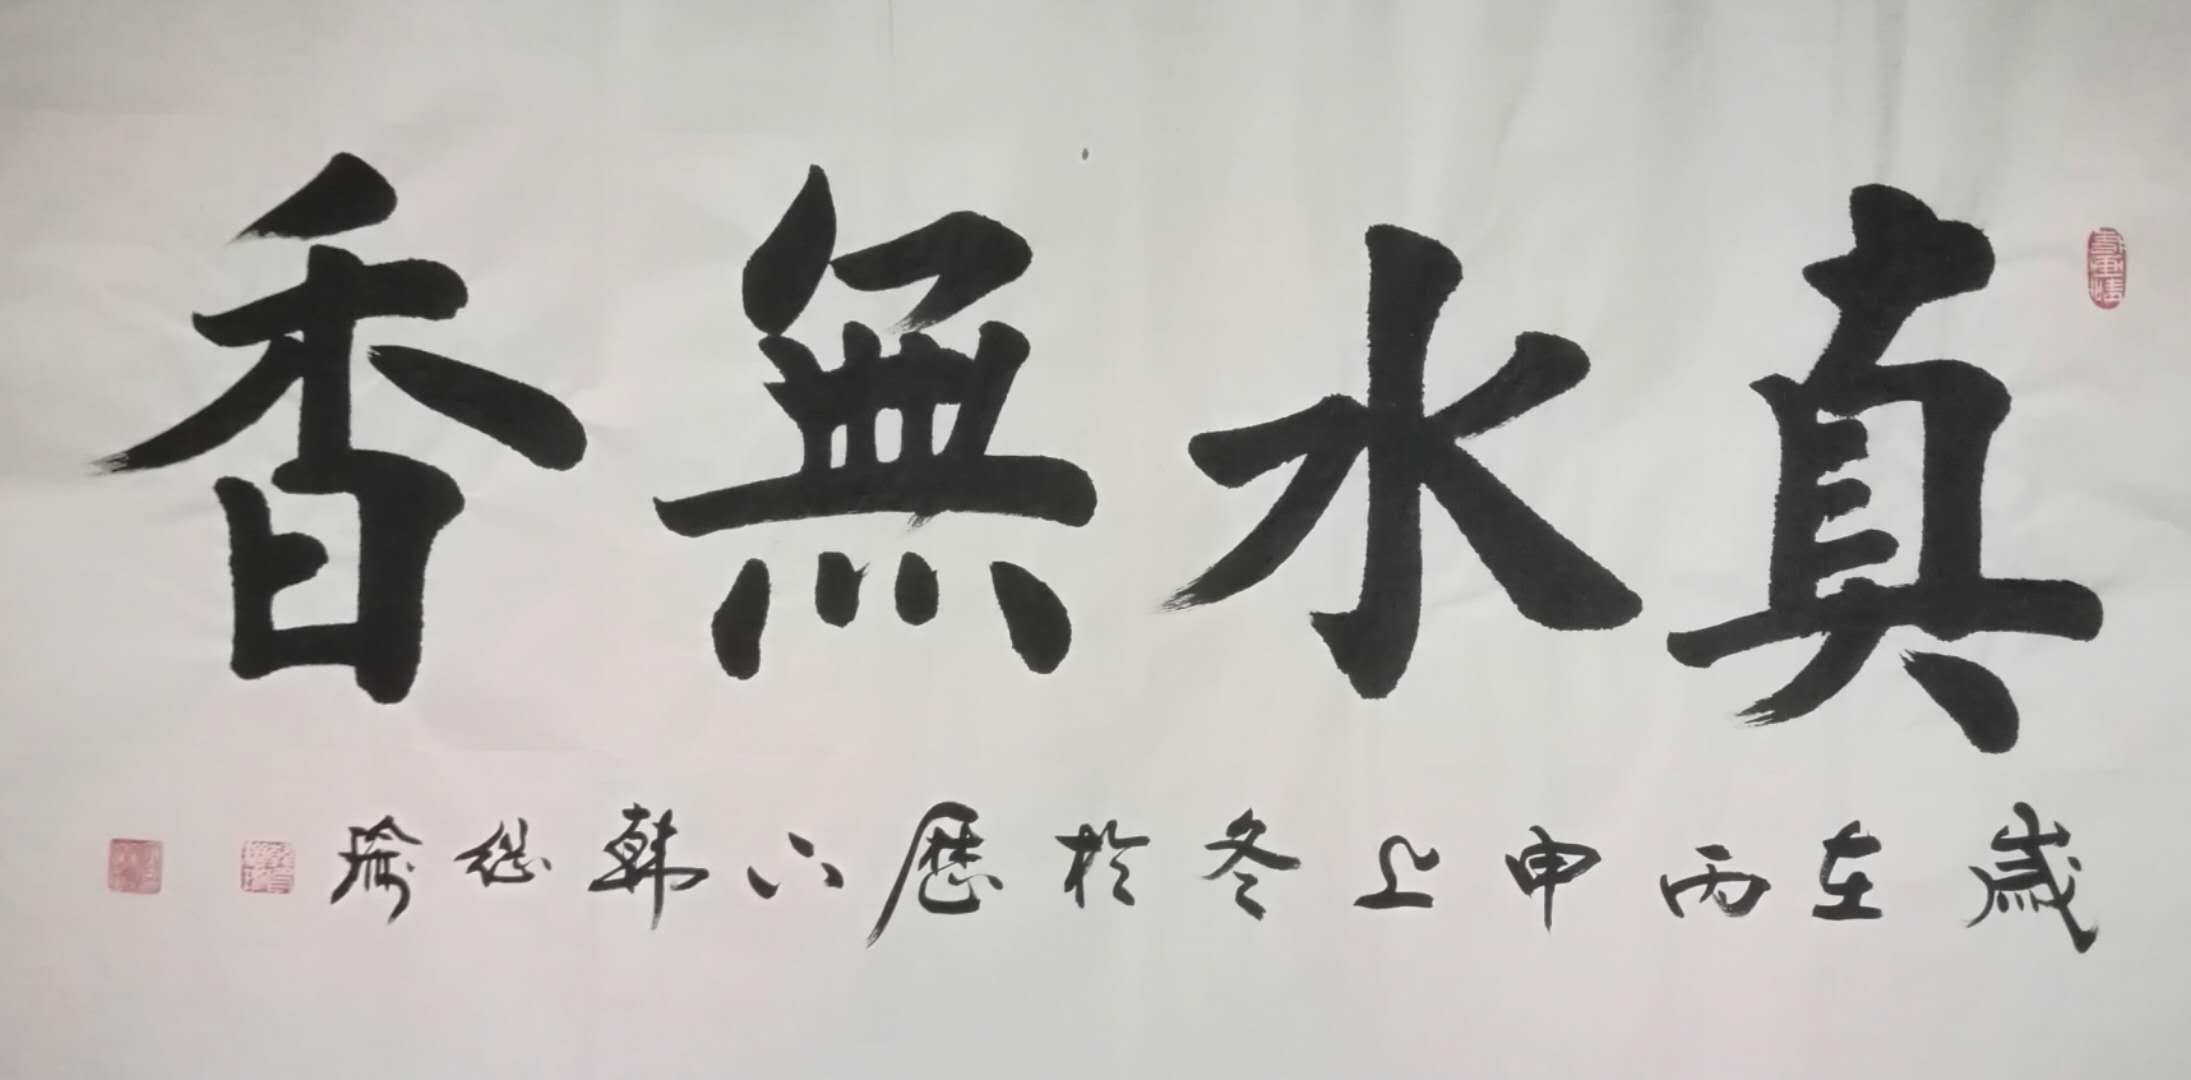 真水無香
歲在丙申之冬於歷下韓继瑜